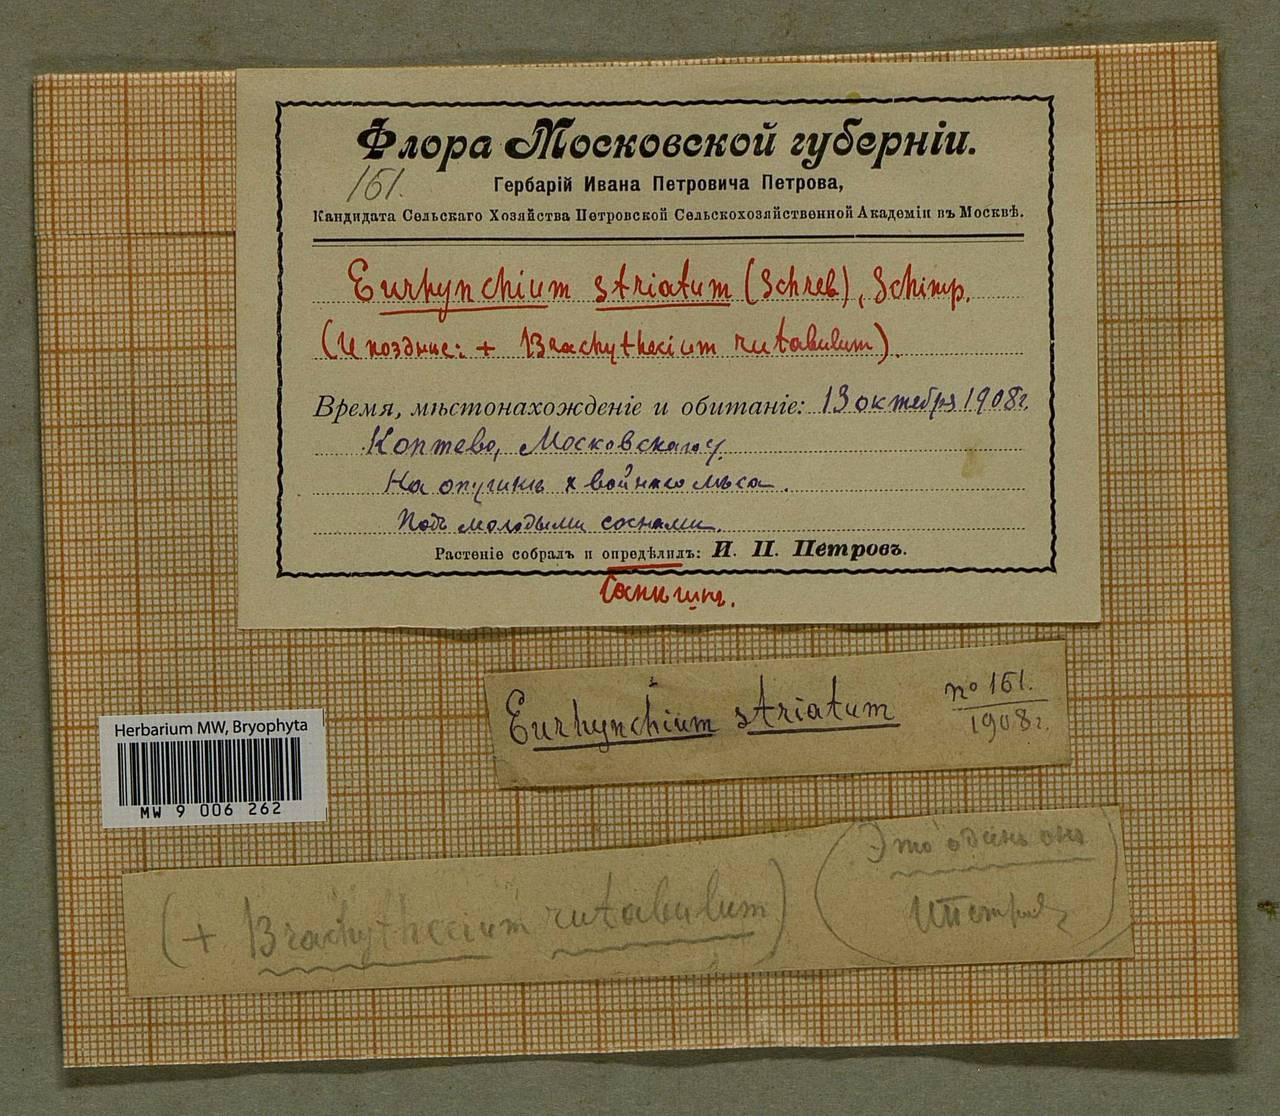 Флора Московской губерніи.
161.
Гербарій Ивана Петровича Петрова,
Кандидата Сельскаго Хозяйства Петровской Сельскохозяйственной Академіи въ Москвѣ.
Eurhynchium striatum (Schreb), Schimp.
(И позднѣе: + Brachythecium rutabulum).
Время, мѣстонахожденіе и обитаніе: 13 октября 1908 г.
Коптево, Московскаго у.
На опушкѣ хвойнаго лѣса.
Подъ молодыми соснами.
Растеніе собралъ и опредѣлилъ: И. П. Петровъ.
Eurhynchium striatum
nº 161.
1908 г.
Herbarium MW, Bryophyta
MW 9 006 262
(+ Brachythecium rutabulum)
(Это одинъ онъ
ИПетровъ)